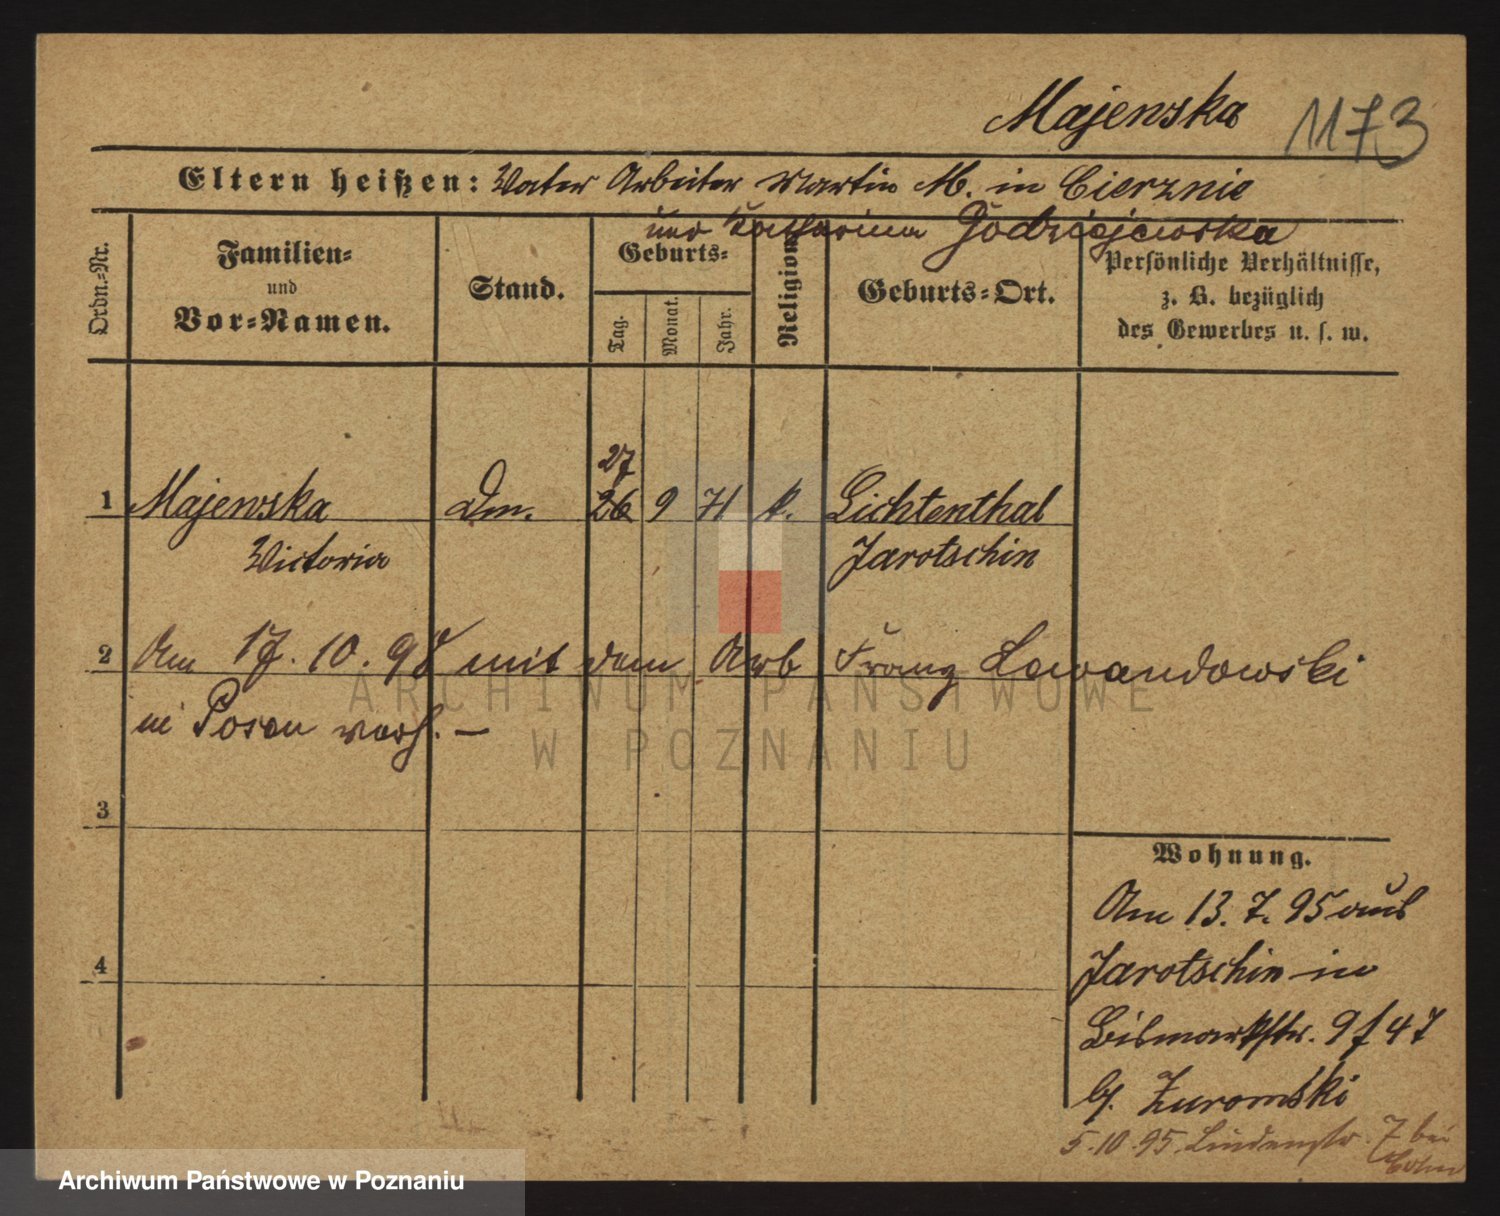 Majewska 1173
Eltern heißen: Vater Arbeiter Martin M. in Cierznie
und Katharina Godziejewska
Ordn.-Nr.
Familien-
und
Vor-Namen.
Stand.
Geburts-
Tag.
Monat.
Jahr.
Religion
Geburts-Ort.
Persönliche Verhältnisse,
z. B. bezüglich
des Gewerbes u. s. w.
27
1 Majewska Dm. 26 9 71 k. Lichtenthal
Victoria Jarotschin
2 Am 17.10.98 mit dem Arb Franz Lewandowski
in Posen verh. —
3
4
Wohnung.
Am 13.7.95 aus
Jarotschin in
Bismarkstr. 9 f 47
b/. Zuromski
5.10.95. Lindenstr. 7 bei
ARCHIWUM PAŃSTWOWE
W POZNANIU
Archiwum Państwowe w Poznaniu